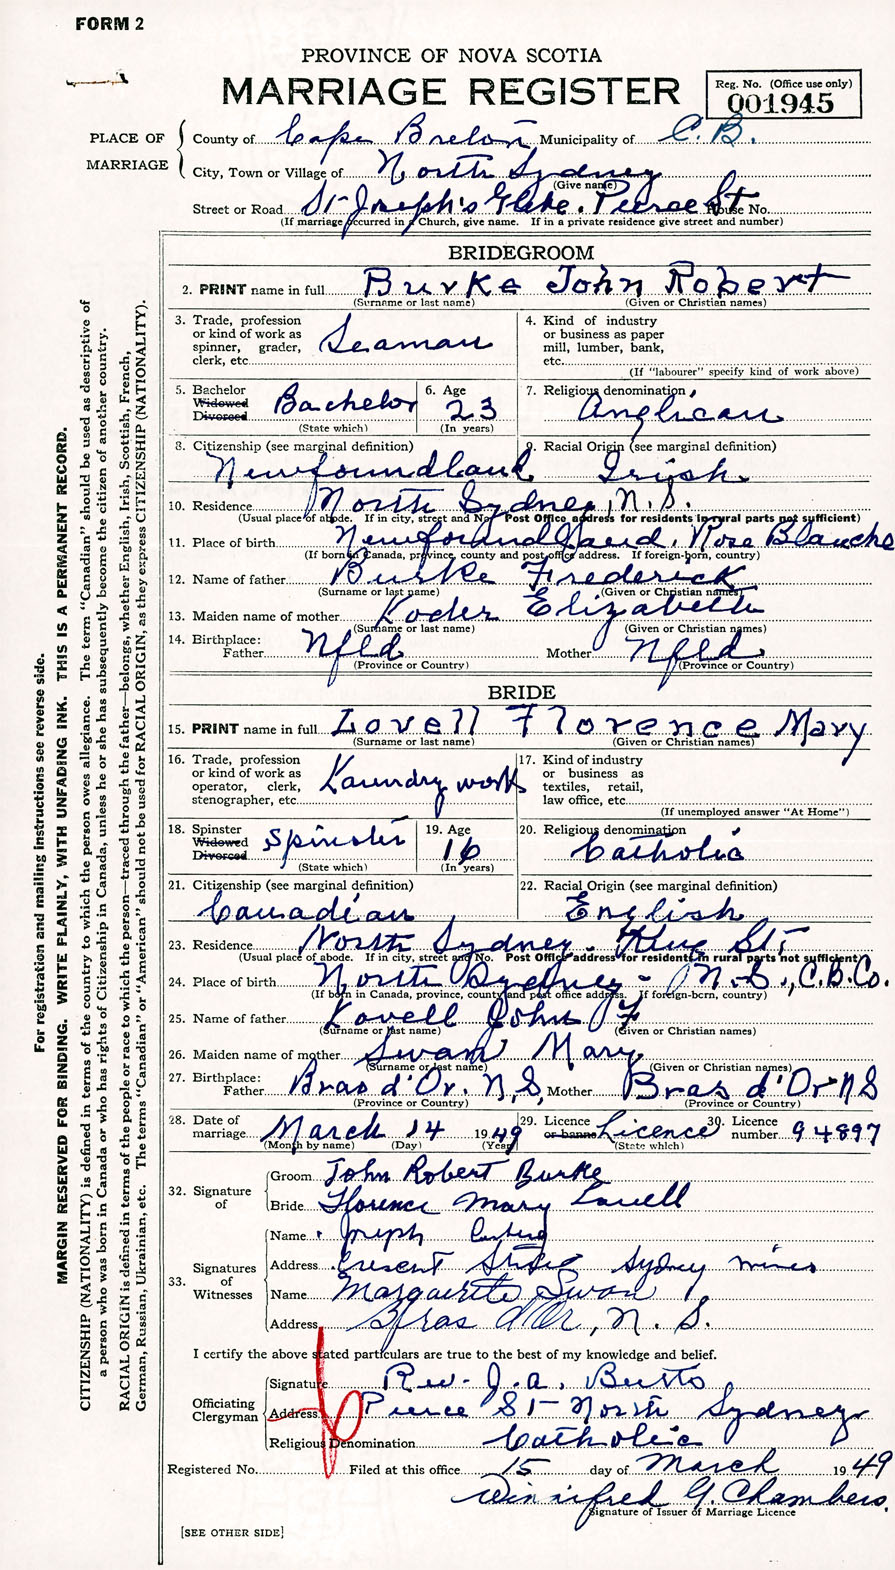 FORM 2
PROVINCE OF NOVA SCOTIA
MARRIAGE REGISTER
Reg. No. (Office use only)
001945
PLACE OF MARRIAGE
County of Cape Breton Municipality of C.B.
City, Town or Village of North Sydney
(Give name)
Street or Road St Joseph's Glebe. Pierce St House No.
(If marriage occurred in a Church, give name. If in a private residence give street and number)
BRIDEGROOM
2. PRINT name in full Burke John Robert
(Surname or last name) (Given or Christian names)
3. Trade, profession or kind of work as spinner, grader, clerk, etc. Seaman
4. Kind of industry or business as paper mill, lumber, bank, etc.
(If "labourer" specify kind of work above)
5. Bachelor Widowed Divorced Bachelor
(State which)
6. Age 23
(In years)
7. Religious denomination Anglican
8. Citizenship (see marginal definition) Newfoundland
9. Racial Origin (see marginal definition) Irish
10. Residence North Sydney, N.S.
(Usual place of abode. If in city, street and No. Post Office address for residents in rural parts not sufficient)
11. Place of birth Newfoundland. Rose Blanche
(If born in Canada, province, county and post office address. If foreign-born, country)
12. Name of father Burke Frederick
(Surname or last name) (Given or Christian names)
13. Maiden name of mother Elizabeth
(Surname or last name) (Given or Christian names)
14. Birthplace: Father Nfld Mother Nfld
(Province or Country) (Province or Country)
BRIDE
15. PRINT name in full Lovell Florence Mary
(Surname or last name) (Given or Christian names)
16. Trade, profession or kind of work as operator, clerk, stenographer, etc. Laundry work
17. Kind of industry or business as textiles, retail, law office, etc.
(If unemployed answer "At Home")
18. Spinster Widowed Divorced Spinster
(State which)
19. Age 16
(In years)
20. Religious denomination Catholic
21. Citizenship (see marginal definition) Canadian
22. Racial Origin (see marginal definition) English
23. Residence North Sydney. King St
(Usual place of abode. If in city, street and No. Post Office address for residents in rural parts not sufficient)
24. Place of birth North Sydney - N.S., C.B.Co.
(If born in Canada, province, county and post office address. If foreign-born, country)
25. Name of father Lovell John F
(Surname or last name) (Given or Christian names)
26. Maiden name of mother Swan Mary
(Surname or last name) (Given or Christian names)
27. Birthplace: Father Bras d'Or. N.S. Mother Bras d'Or NS
(Province or Country) (Province or Country)
28. Date of marriage March 14 1949
(Month by name) (Day) (Year)
29. Licence or banns Licence
(State which)
30. Licence number 94897
32. Signature of
Groom John Robert Burke
Bride Florence Mary Lovell
33. Signatures of Witnesses
Name Joseph
Address Cresent Street Sydney mines
Name Marguerite Swan
Address Bras d'Or, N. S.
I certify the above stated particulars are true to the best of my knowledge and belief.
Officiating Clergyman
Signature Rev. J.A.
Address Pierce St North Sydney
Religious Denomination Catholic
Registered No. Filed at this office 15 day of March 1949
Winnifred G. Chambers.
Signature of Issuer of Marriage Licence
[SEE OTHER SIDE]
For registration and mailing instructions see reverse side.
MARGIN RESERVED FOR BINDING. WRITE PLAINLY, WITH UNFADING INK. THIS IS A PERMANENT RECORD.
CITIZENSHIP (NATIONALITY) is defined in terms of the country to which the person owes allegiance. The term "Canadian" should be used as descriptive of
a person who was born in Canada or who has rights of Citizenship in Canada, unless he or she has subsequently become the citizen of another country.
RACIAL ORIGIN is defined in terms of the people or race to which the person—traced through the father—belongs, whether English, Irish, Scottish, French,
German, Russian, Ukrainian, etc. The terms "Canadian" or "American" should not be used for RACIAL ORIGIN, as they express CITIZENSHIP (NATIONALITY).